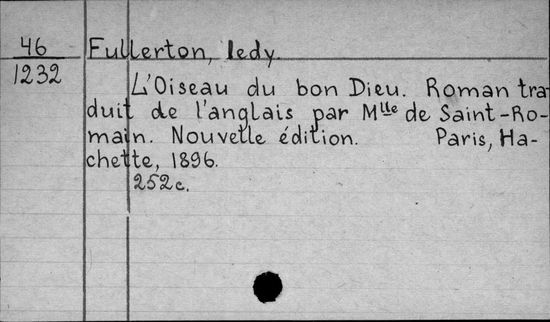 46 Fullerton, ledy.
1232
L'Oiseau du bon Dieu. Roman tra-
duit de l'anglais par Mlle de Saint-Ro-
main. Nouvelle édition. Paris, Ha-
chette, 1896.
252c.